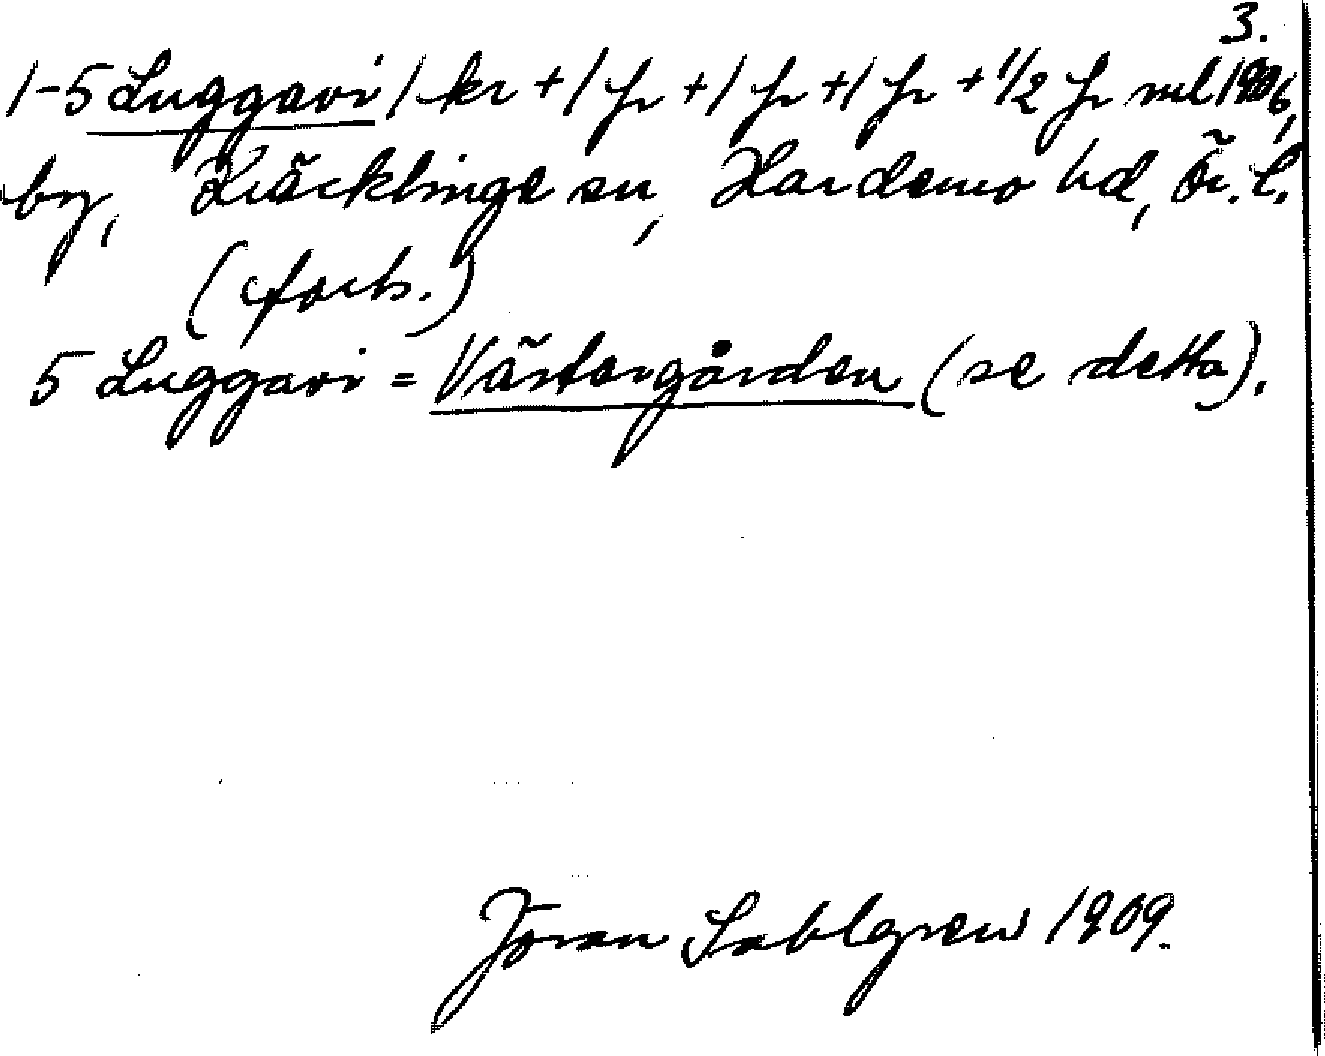 3.
1-5 Luggavi 1 kr + 1 fr + 1 fr + 1 fr + 1/2 fr ml 1906,
by, Kräcklinge sn, Hardemo hd, Ör. l.
(forts.)
5 Luggavi = Västergården (se detta).
Jöran Sahlgren 1909.